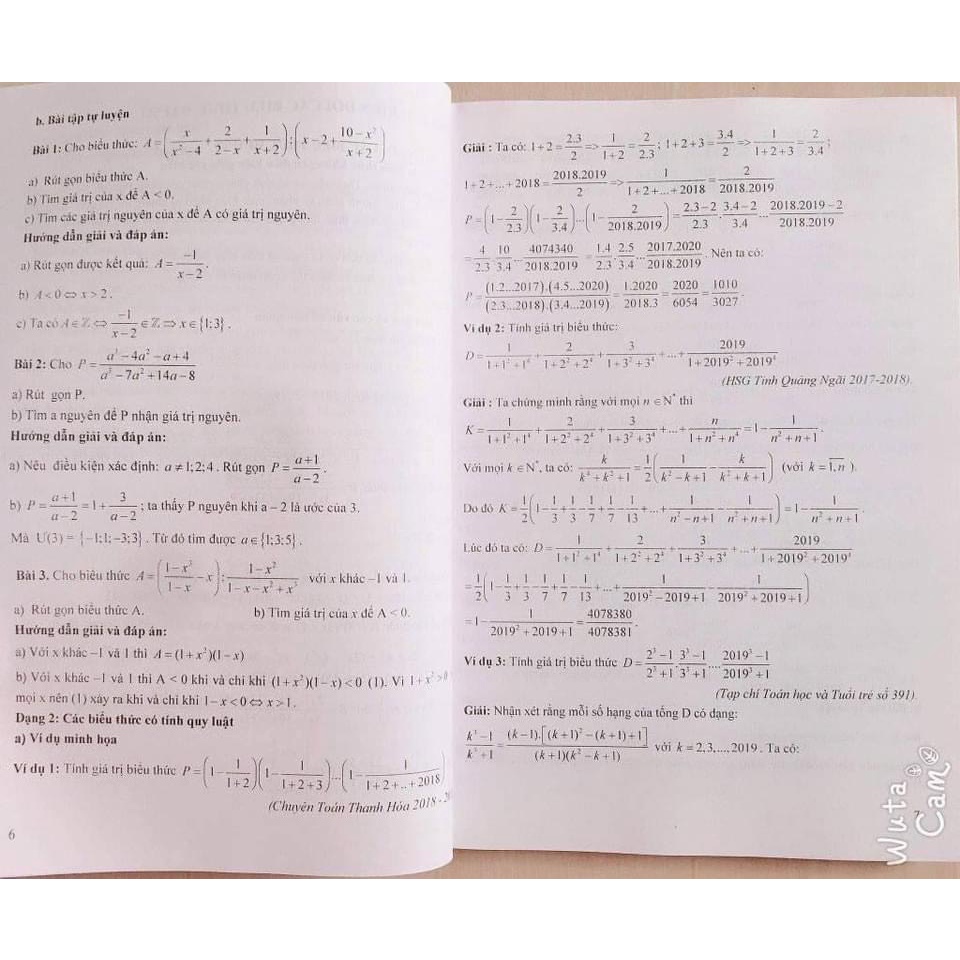 b. Bài tập tự luyện
Bài 1: Cho biểu thức: A = (x/(x²−4) + 2/(2−x) + 1/(x+2)) : (x−2 + (10−x²)/(x+2))
a) Rút gọn biểu thức A.
b) Tìm giá trị của x để A < 0.
c) Tìm các giá trị nguyên của x để A có giá trị nguyên.
Hướng dẫn giải và đáp án:
a) Rút gọn được kết quả: A = −1/(x−2).
b) A < 0 ⇔ x > 2.
c) Ta có A ∈ Z ⇔ −1/(x−2) ∈ Z ⇒ x ∈ {1;3}.
Bài 2: Cho P = (a³−4a²−a+4)/(a³−7a²+14a−8)
a) Rút gọn P.
b) Tìm a nguyên để P nhận giá trị nguyên.
Hướng dẫn giải và đáp án:
a) Nêu điều kiện xác định: a ≠ 1;2;4. Rút gọn P = (a+1)/(a−2).
b) P = (a+1)/(a−2) = 1 + 3/(a−2); ta thấy P nguyên khi a – 2 là ước của 3.
Mà Ư(3) = {−1;1;−3;3}. Từ đó tìm được a ∈ {1;3;5}.
Bài 3. Cho biểu thức A = ((1−x³)/(1−x) − x) : (1−x²)/(1−x−x²+x³) với x khác –1 và 1.
a) Rút gọn biểu thức A. b) Tìm giá trị của x để A < 0.
Hướng dẫn giải và đáp án:
a) Với x khác –1 và 1 thì A = (1+x²)(1−x)
b) Với x khác –1 và 1 thì A < 0 khi và chỉ khi (1+x²)(1−x) < 0 (1). Vì 1+x² > 0
mọi x nên (1) xảy ra khi và chỉ khi 1−x < 0 ⇔ x > 1.
Dạng 2: Các biểu thức có tính quy luật
a) Ví dụ minh họa
Ví dụ 1: Tính giá trị biểu thức P = (1 − 1/(1+2))(1 − 1/(1+2+3))...(1 − 1/(1+2+..+2018)
(Chuyên Toán Thanh Hóa 2018 -
6
Giải : Ta có: 1+2 = 2.3/2 => 1/(1+2) = 2/2.3; 1+2+3 = 3.4/2 => 1/(1+2+3) = 2/3.4;
1+2+...+2018 = 2018.2019/2 => 1/(1+2+...+2018) = 2/2018.2019
P = (1 − 2/2.3)(1 − 2/3.4)...(1 − 2/2018.2019) = (2.3−2)/2.3 . (3.4−2)/3.4 ... (2018.2019−2)/2018.2019
= 4/2.3 . 10/3.4 ... 4074340/2018.2019 = 1.4/2.3 . 2.5/3.4 ... 2017.2020/2018.2019. Nên ta có:
P = (1.2...2017).(4.5...2020)/(2.3...2018).(3.4...2019) = 1.2020/2018.3 = 2020/6054 = 1010/3027.
Ví dụ 2: Tính giá trị biểu thức:
D = 1/(1+1²+1⁴) + 2/(1+2²+2⁴) + 3/(1+3²+3⁴) + ... + 2019/(1+2019²+2019⁴)
(HSG Tỉnh Quảng Ngãi 2017-2018).
Giải : Ta chứng minh rằng với mọi n ∈ N* thì
K = 1/(1+1²+1⁴) + 2/(1+2²+2⁴) + 3/(1+3²+3⁴) + ... + n/(1+n²+n⁴) = 1 − 1/(n²+n+1).
Với mọi k ∈ N*, ta có: k/(k⁴+k²+1) = 1/2 (1/(k²−k+1) − k/(k²+k+1)) (với k = 1,n).
Do đó K = 1/2 (1 − 1/3 + 1/3 − 1/7 + 1/7 − 1/13 + ... + 1/(n²−n+1) − 1/(n²+n+1)) = 1 − 1/(n²+n+1).
Lúc đó ta có: D = 1/(1+1²+1⁴) + 2/(1+2²+2⁴) + 3/(1+3²+3⁴) + ... + 2019/(1+2019²+2019⁴)
= 1/2 (1 − 1/3 + 1/3 − 1/7 + 1/7 − 1/13 + ... + 1/(2019²−2019+1) − 1/(2019²+2019+1))
= 1 − 1/(2019²+2019+1) = 4078380/4078381.
Ví dụ 3: Tính giá trị biểu thức D = (2³−1)/(2³+1) . (3³−1)/(3³+1) .... (2019³−1)/(2019³+1)
(Tạp chí Toán học và Tuổi trẻ số 391).
Giải: Nhận xét rằng mỗi số hạng của tổng D có dạng:
(k³−1)/(k³+1) = (k−1).[(k+1)²−(k+1)+1]/(k+1)(k²−k+1) với k = 2,3,...,2019. Ta có:
7
Wuta
Cam